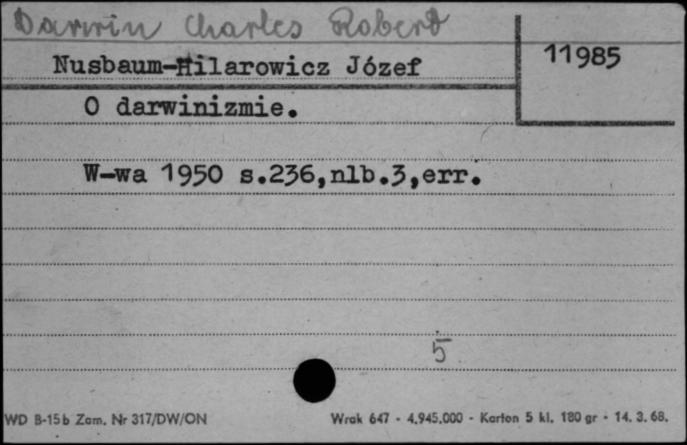 Darwin Charles Robert
Nusbaum-Hilarowicz Józef
11985
O darwinizmie.
W-wa 1950 s.236,nlb.3,err.
5
WD B-15b Zam. Nr 317/DW/ON
Wrak 647 - 4.945.000 - Karton 5 kl. 180 gr - 14. 3. 68.